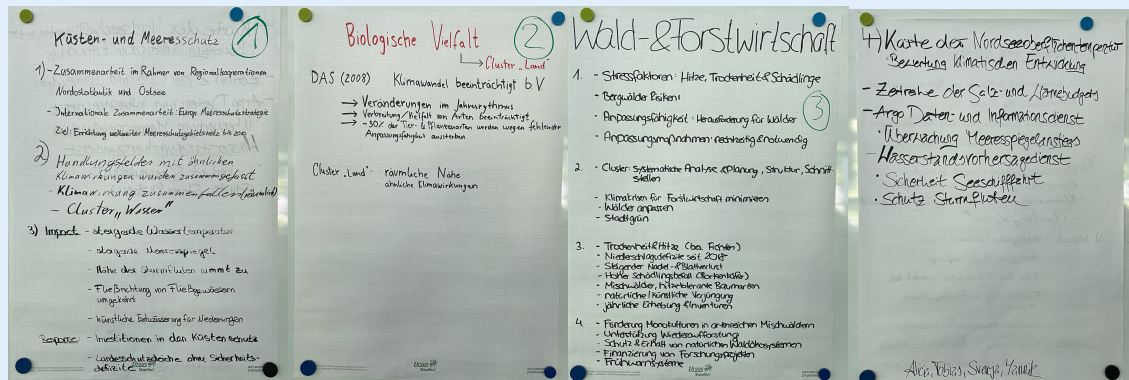 Küsten- und Meeresschutz
1
1) - Zusammenarbeit im Rahmen von Regionalkooperationen
Nordostatlantik und Ostsee
- Internationale Zusammenarbeit: Europ. Meeresstrategie
Ziel: Errichtung weltweiter Meeresschutzgebietsnetz bis 2019
2) Handlungsfeldes mit ähnlichen
Klimawirkungen wurden zusammengefasst
- Klimawirkung zusammenfallen (räumlich)
- Cluster „Wasser"
3) Impact - steigende Wassertemperatur
- steigende Meeresspiegel
- Höhe der Sturmfluten nimmt zu
- Fließrichtung von Fließgewässern
umgekehrt
- künstliche Entwässerung für Niederungen
Response - Investitionen in den Küstenschutz
- Landesschutzdeiche ohne Sicherheits-
defizite
Biologische Vielfalt
2
Cluster „Land"
DAS (2008) Klimawandel beeinträchtigt b.V
Veränderungen im Jahresrythmus
Verbreitung/Vielfalt von Arten beeinträchtigt
~30% der Tier- & Pflanzenarten werden wegen fehlender
Anpassungsfähigkeit aussterben
Cluster „Land": räumliche Nähe
ähnliche Klimawirkungen
Wald-&Forstwirtschaft
3
1. - Stressfaktoren: Hitze, Trockenheit & Schädlinge
- Bergwälder Risiken!
- Anpassungsfähigkeit: Herausforderung für Wälder
- Anpassungsmaßnahmen: rechtzeitig & notwendig
2. - Cluster: Systematische Analyse & Planung, Struktur, Schnitt-
stellen
- Klimakrisen für Forstwirtschaft minimieren
- Wälder anpassen
- Stadtgrün
3. - Trockenheit & Hitze (bes. Fichten)
- Niederschlagsdefizite seit 2018
- Steigender Nadel- & Blattverlust
- Hoher Schädlingsbefall (Borkenkäfer)
- Mischwälder, hitzetolerante Baumarten
- natürliche/künstliche Verjüngung
- jährliche Erhebung & Inventuren
4. - Förderung Monokulturen in artenreichen Mischwäldern
- Unterstützung Wiederaufforstung
- Schutz & Erhalt von natürlichen Waldökosystemen
- Finanzierung von Forschungsprojekten
- Frühwarnsysteme
4) Karte der Nordseeoberflächentemperatur
- Bewertung Klimatischen Entwicklung
- Zeitreihe der Salz- und Wärmebudgets
- Argo Daten- und Informationsdienst
• Überwachung Meeresspiegelanstiegs
- Wasserstandsvorhersagedienst
• Sicherheit Seeschifffahrt
• Schutz Sturmfluten
Alicia, Tobias, Svenja, Yannik